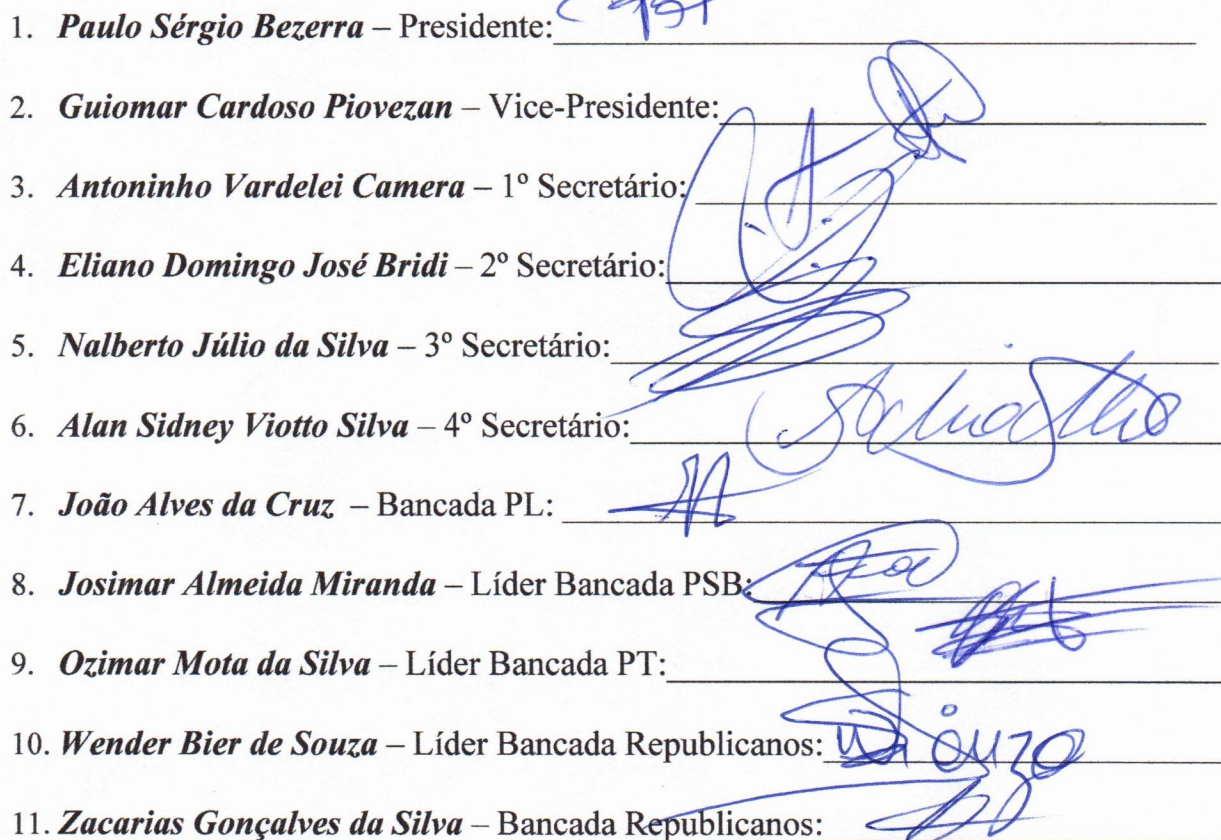 1. Paulo Sérgio Bezerra – Presidente:
2. Guiomar Cardoso Piovezan – Vice-Presidente:
3. Antoninho Vardelei Camera – 1º Secretário:
4. Eliano Domingo José Bridi – 2º Secretário:
5. Nalberto Júlio da Silva – 3º Secretário:
6. Alan Sidney Viotto Silva – 4º Secretário:
7. João Alves da Cruz – Bancada PL:
8. Josimar Almeida Miranda – Líder Bancada PSB:
9. Ozimar Mota da Silva – Líder Bancada PT:
10. Wender Bier de Souza – Líder Bancada Republicanos:
11. Zacarias Gonçalves da Silva – Bancada Republicanos: